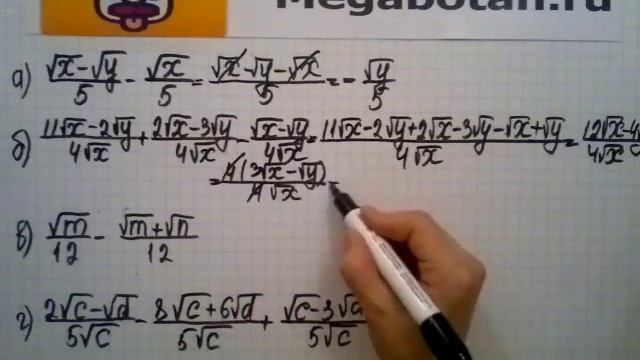 Megabotan.ru
а) (√x-√y)/5 - √x/5 = (√x-√y-√x)/5 = - √y/5
б) (11√x-2√y)/(4√x) + (2√x-3√y)/(4√x) - (√x-√y)/(4√x) = (11√x-2√y+2√x-3√y-√x+√y)/(4√x) = (12√x-4√y)/(4√x)
= 4(3√x-√y)/(4√x) =
в) √m/12 - (√m+√n)/12
г) (2√c-√d)/(5√c) - (8√c+6√d)/(5√c) + (√c-3√d)/(5√c)